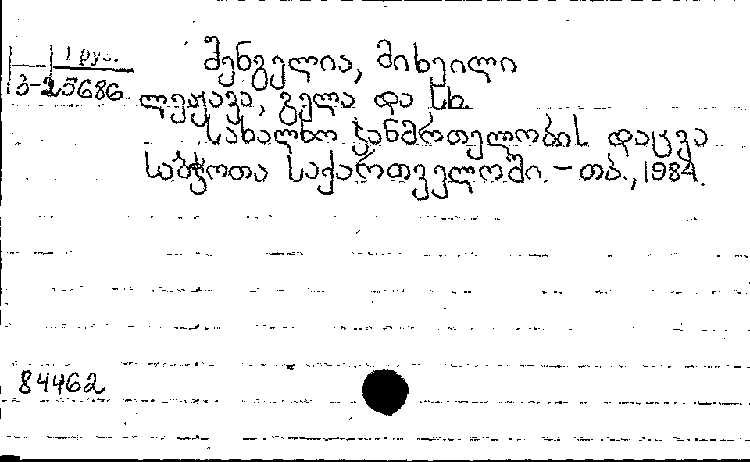 1 рус.
შენგელია, მიხეილი
3-25686
ლეჟავა, გელა და სხ.
სახალხო ჯანმრთელობის დაცვა
საბჭოთა საქართველოში. – თბ., 1984.
84462